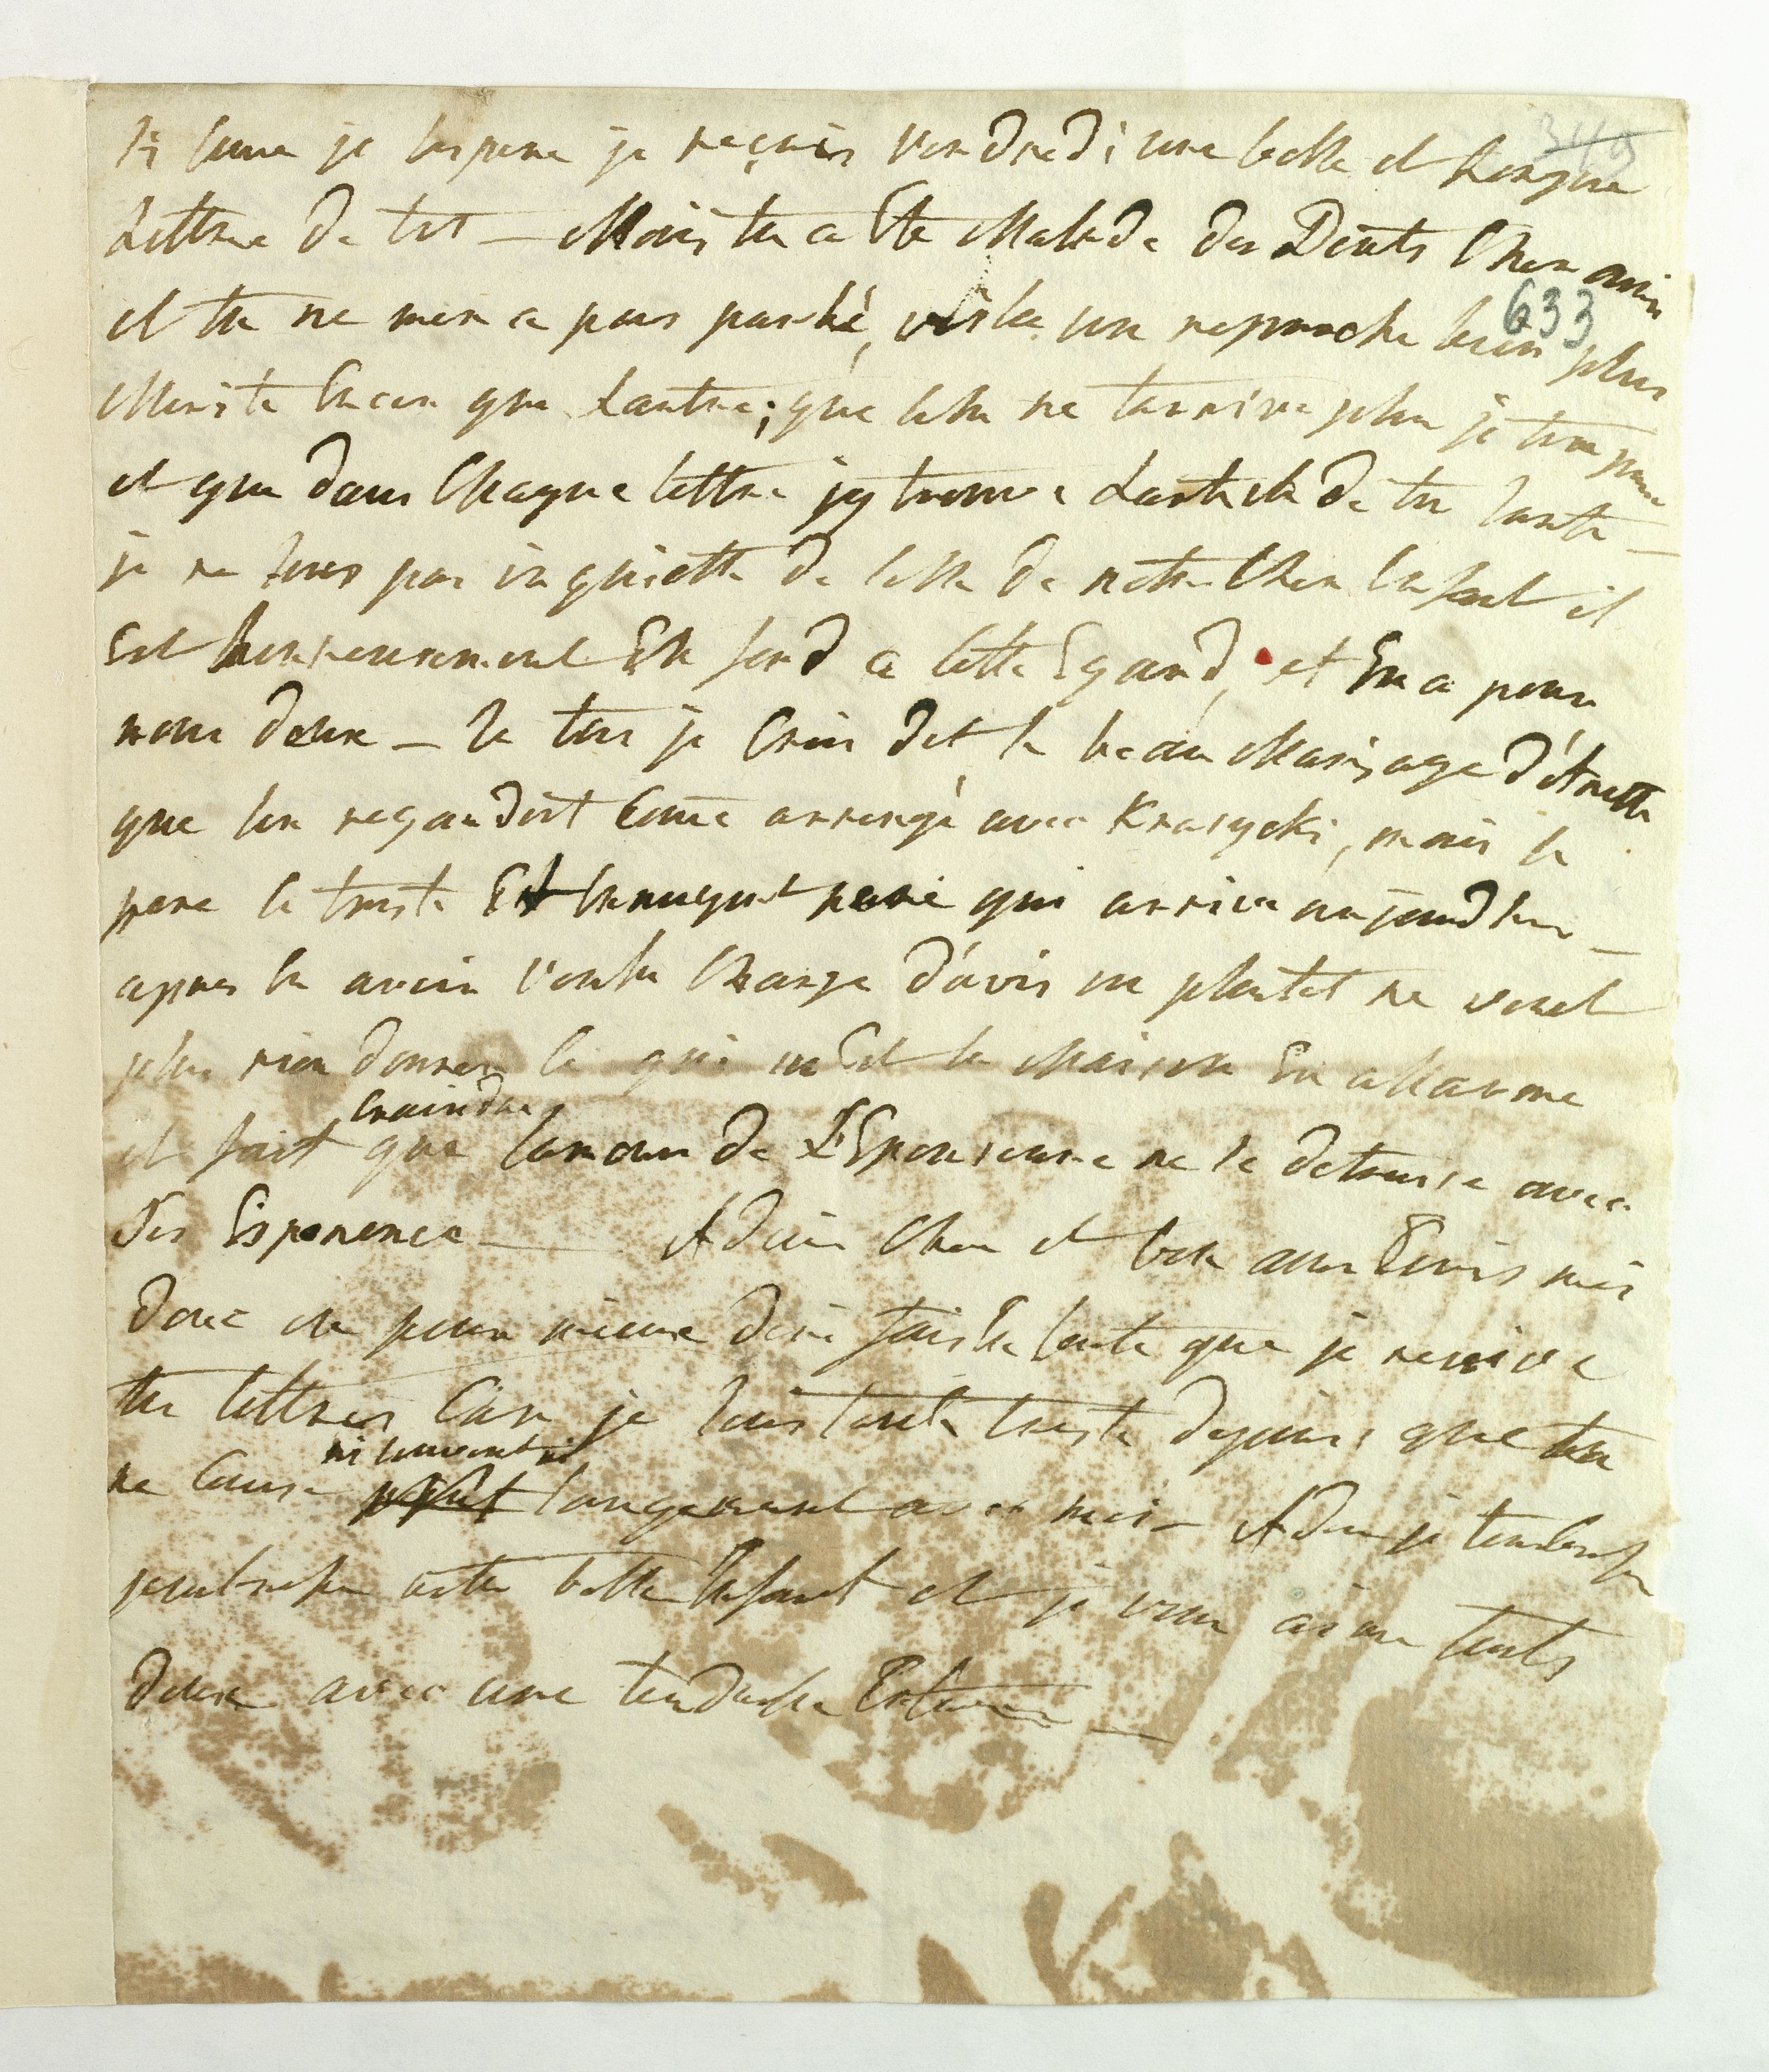 349
si come je lespere je reçois Vendredi une belle et Longue
Lettre de toi — Mais tu a Ete Malade des Dents Cher ami
633
et tu ne men a pas parlé, voila un reproche bien plus
Merite Encor que Lautre; que cela ne tarrive plus je ten prie
et que dans Chaque lettre jy trouve Larticle de ta sante —
je ne suis pas inquiette de celle de notre Cher Enfant il
Est heureusement En fond a cette Egard, et En a pour
nous deux — je tai je Crois dit le beau Mariage d'
que lon regardoit Come arrengé avec Krasycki, mais le
pere le triste Et Ennuyant pere qui arrive aujourdhui —
apres la avoir Voulu Change d'avis ou plutot ne veut
plus rien donner ce qui met la Maison En allarme
craindre
et fait que lamour de L'Epouseur ne se detruise avec
ses Esperence — Adieu Cher et bon ami Ecris moi
donc ou pour mieux dire fais En sorte que je recoive
tes lettres Car je suis toute triste depuis que tu
ni souvent ni
ne Cause longuement avec moi — Adieu je tembrasse
jembrasse cette belle Enfant et je vous aime touts
deux avec une tendresse Extreme —